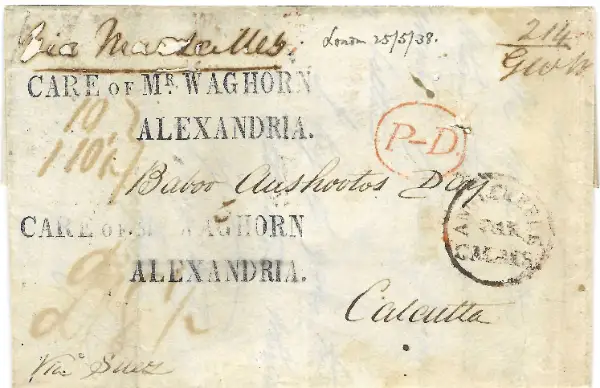 Via Marseilles.
London 25/5/38.
2/4
CARE OF MR. WAGHORN
ALEXANDRIA.
10/
1 10/
P-D
Baboo Aushootos Day
CARE OF MR. WAGHORN
ALEXANDRIA.
ANGLETERRE
PAR
CALAIS
Calcutta
Via Suez